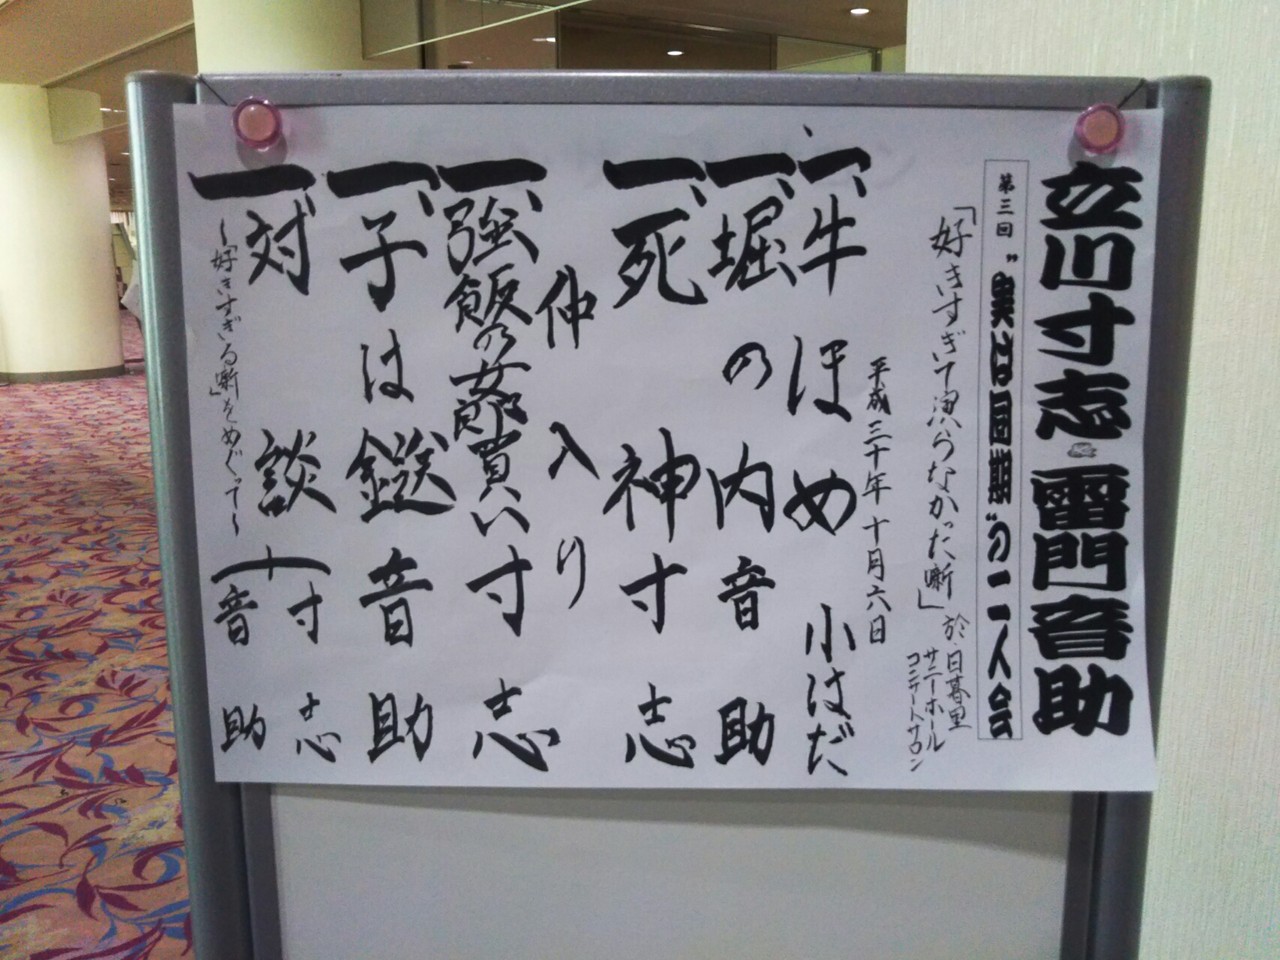 立川寸志 雷門音助
第三回 "実は同期"の二人会
「好きすぎて演らなかった噺」 於・日暮里
サニーホール
コンサートサロン
平成三十年十月六日
一、牛ほめ 小はだ
一、堀の内 音助
一、死神 寸志
仲入り
一、強飯の女郎買い 寸志
一、子は鎹 音助
一、対談 寸志
音助
〜「好きすぎる噺」をめぐって〜